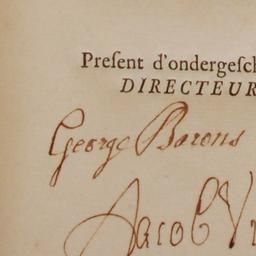 Preſent d'ondergeſch
DIRECTEUR
George Barons
Jacob V